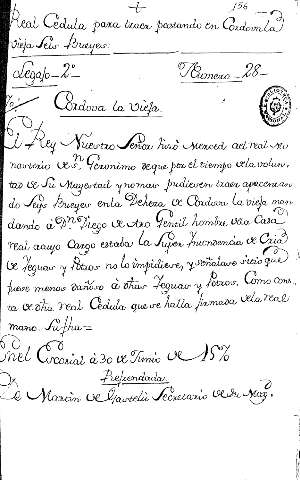 156
Real Cedula para traer pastando en Cordova la
vieja Seis Bueyes.
Legajo - 2º
Numero - 28 -
Cordova la vieja.
El Rey Nuestro Señor hizo merced al real Mo-
nasterio de Sn. Geronimo de que por el tiempo de la volun-
tad de su Magestad y no mas pudiesen traer apacentan-
do Seys Bueyes en la Dehesa de Cordova la vieja man-
dando á Dn. Diego de Aro Gentil hombre de la Casa
real á cuyo Cargo estaba la Super Intendencia de Cria
de Yeguas y Potros no lo impidiese, y señalase sitio que
fuese menos dañoso á dhas Yeguas y Potros. Como cons-
ta de dha real Cedula que se halla firmada de la real
mano Su fha =
En el Escorial á 30 de Junio de 1570
Refrendada
De Martin de Gaztelu Secretario de Su Mag.